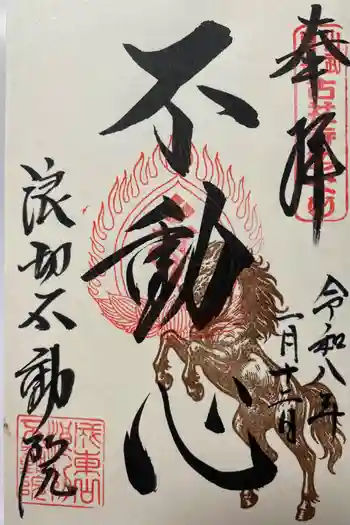 奉拝
不動心
令和八年
一月十二日
浪切不動院